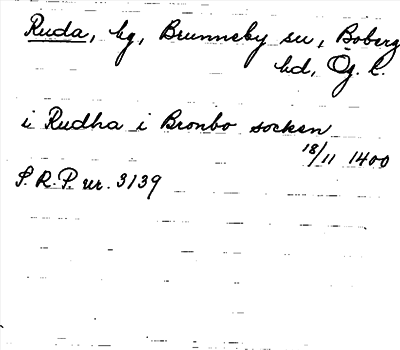 Ruda, hg, Brunneby sn, Boberg
hd, Ög. l.
i Rudha i Bronbo socken
18/11 1400
S.R.P. nr. 3139